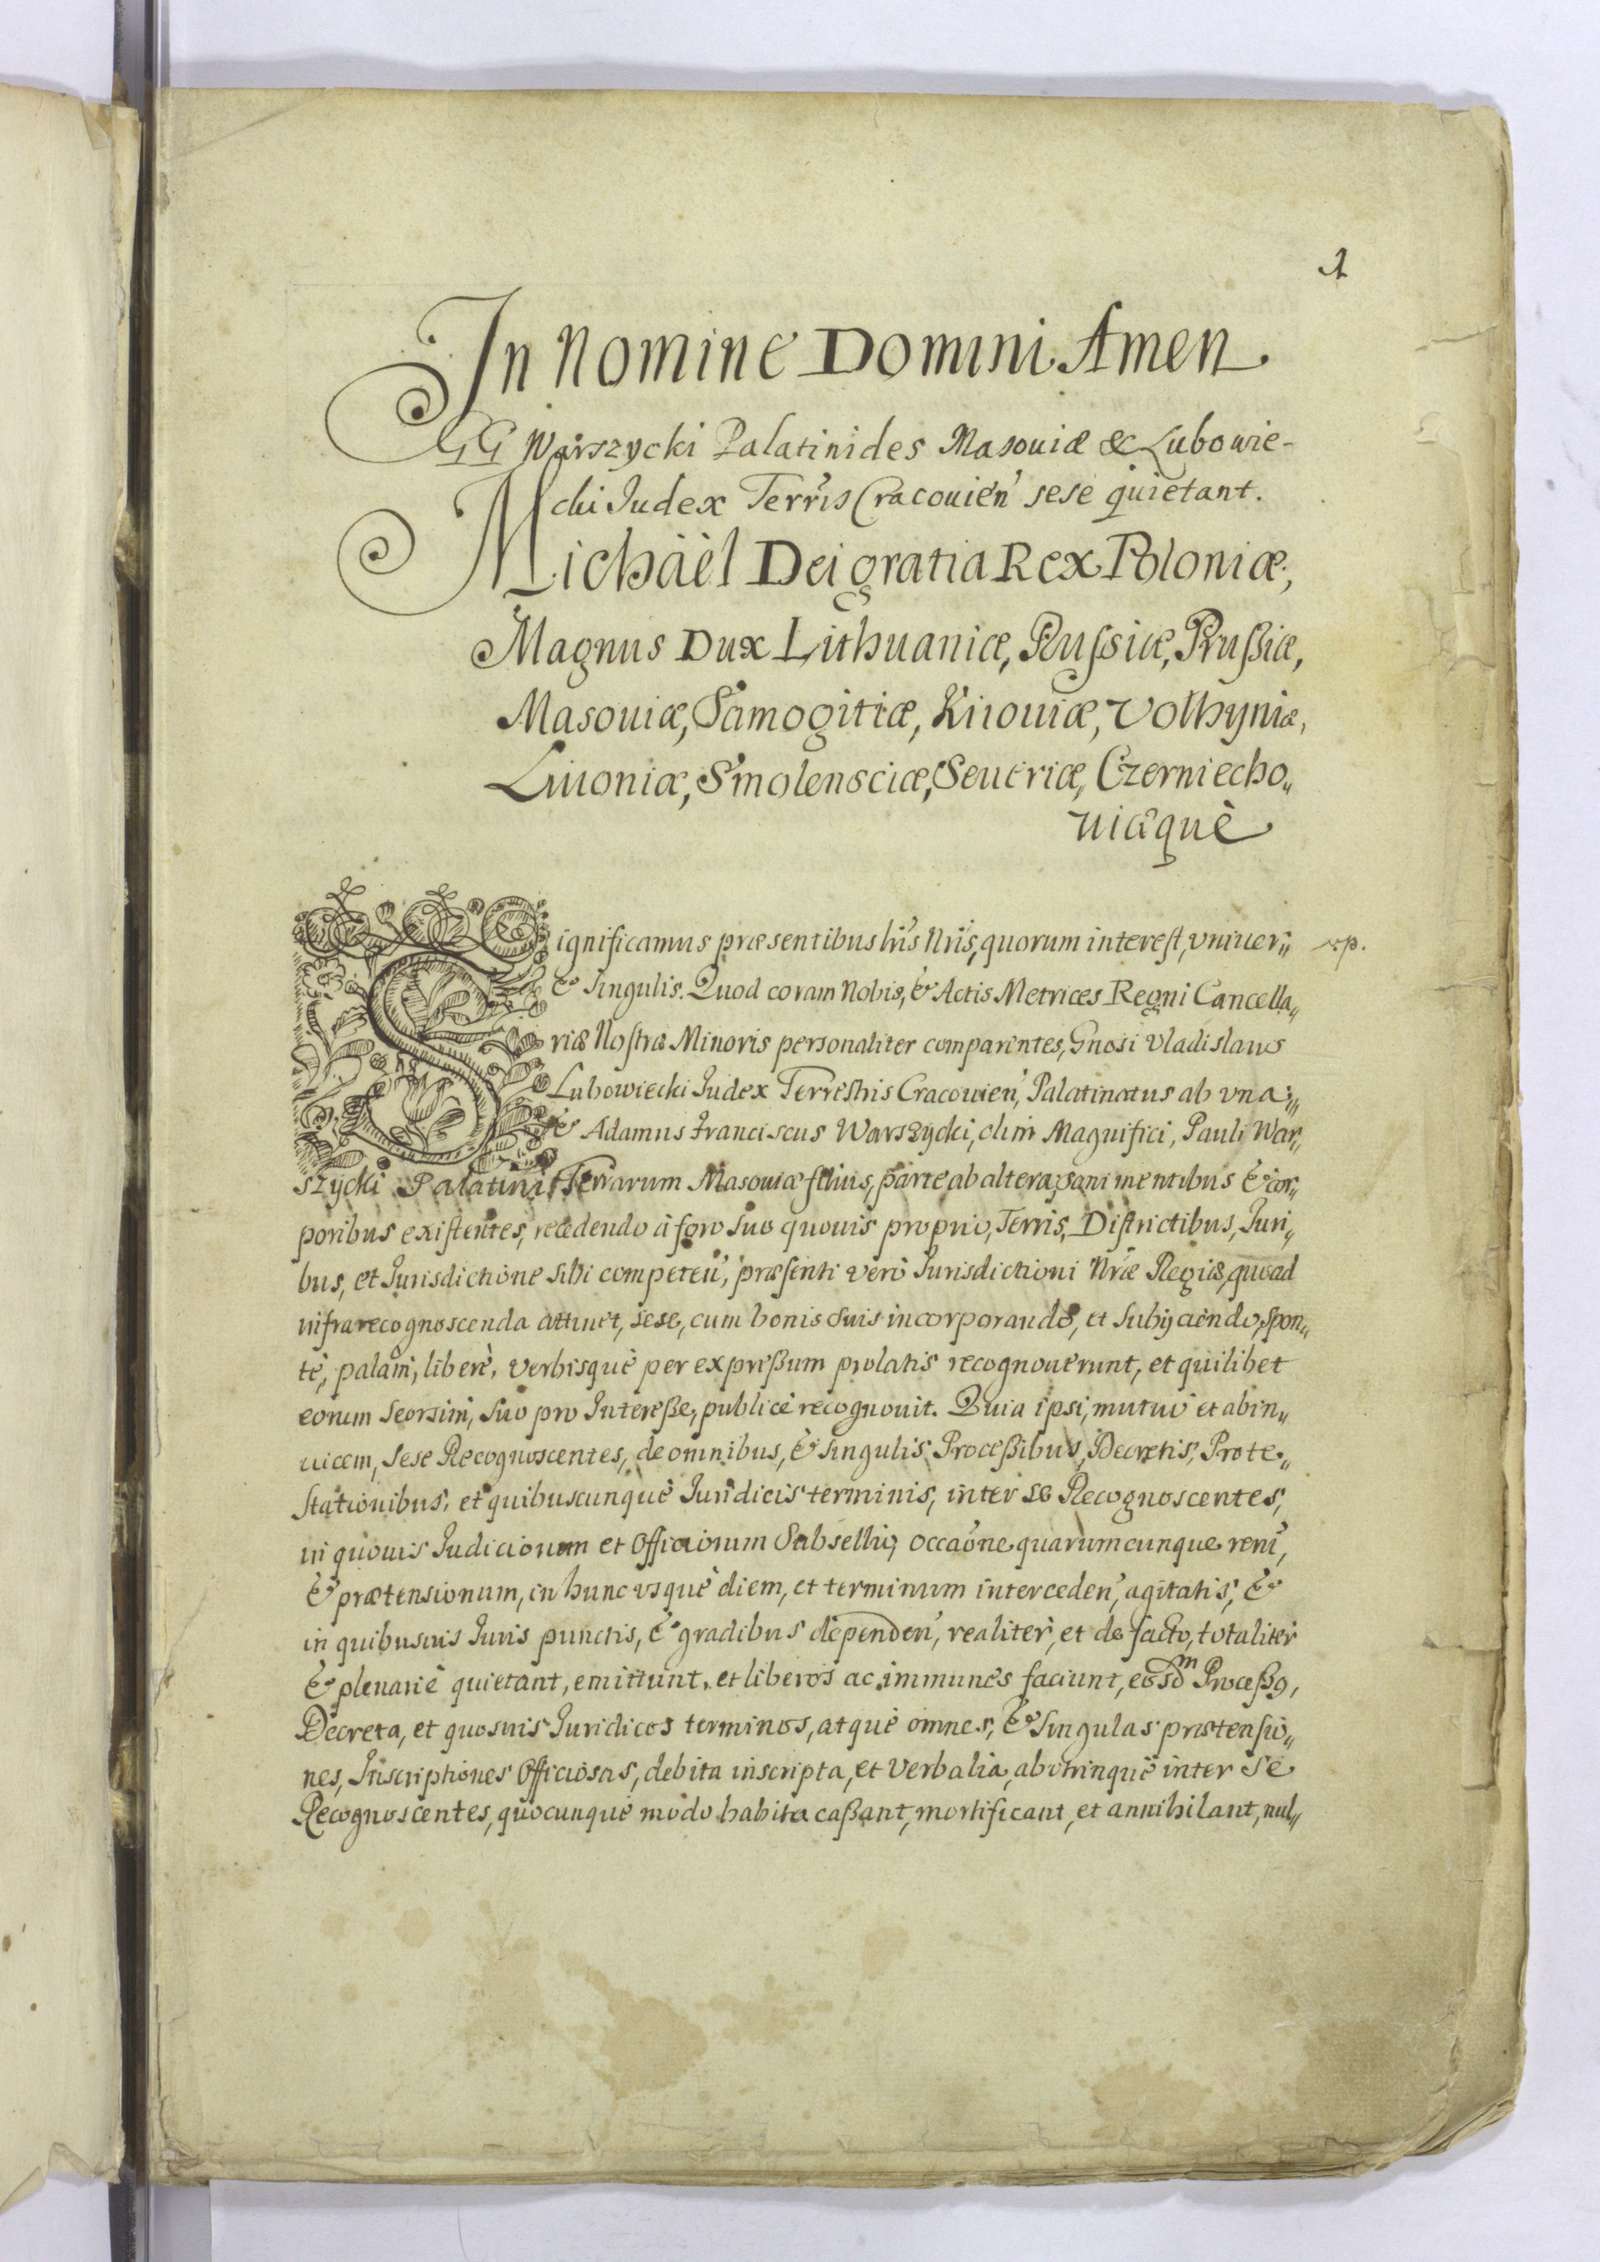 1
In Nomine Domini Amen
GG Warszycki Palatinides Masouiæ & Lubowie-
cki Judex Terr̃is Cracouien̉ sese quietant.
Michäèl Dei gratia Rex Poloniæ,
Magnus Dux Lithuaniæ, Rußiæ, Prußiæ,
Masouiæ, Samogitiæ, Kiiouiæ, Volhyniæ,
Liuoniæ, Smolensciæ, Seueriæ, Czerniecho„
uiæquè
Significamus præsentibus lr̃is Nr̃is, quorum interest, vniuer„
& singulis. Quod coram Nobis, & Actis Metrices Regni Cancella„
riæ Nostræ Minoris personaliter comparentes, Gnosi Vladislaus
Lubowiecki Judex Terrestris Cracouien̉, Palatinatus ab vna„
& Adamus Franciscus Warszycki, olim Magnifici, Pauli War„
szycki Palatini Terrarum Masouiæ filius, parte ab altera, sani mentibus & cor„
poribus existentes, recedendo à foro suo quouis proprio, Terris, Districtibus, Juri„
bus, et Jurisdictione sibi competen̉, præsenti verò Jurisdictioni Nr̃æ Regiæ, quoad
infra recognoscenda attinet, sese, cum bonis suis incorporando, et subijciendo, spon„
te, palam, liberè, verbisquè per expreßum prolatis recognouerunt, et quilibet
eorum seorsim, suo pro Intereße, publicè recognouit. Quia ipsi, mutuò et abin„
uicem, sese Recognoscentes, de omnibus, & singulis Proceßibus, Decretis, Prote„
stationibus, et quibuscunquè Juridicis terminis, inter se Recognoscentes,
in quouis Judiciorum et Officiorum Subsellio, occaõne quarumcunque rerũ,
& prætensionum, in hunc vsquè diem, et terminum interceden̉, agitatis, &
in quibusuis Juris punctis, & gradibus dependen̉, realiter, et de facto, totaliter
& plenariè quietant, emittunt, et liberos ac immunes faciunt, eosdm̃ Proceß9,
Decreta, et quosuis Juridicos terminos, atquè omnes, & singulas prætensio„
nes, Inscriptiones Officiosas, debita inscripta, et verbalia, ab vtrinquè inter se
Recognoscentes, quocunquè modo habita caßant, mortificant, et annihilant, nul„